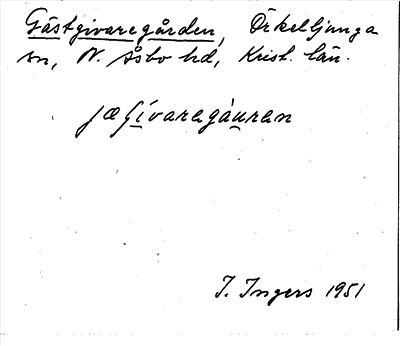 Gästgivaregården, Örkelljunga
sn, N. Åsbo hd, Krist. län.
jæſivaregåuren
I. Ingers 1951